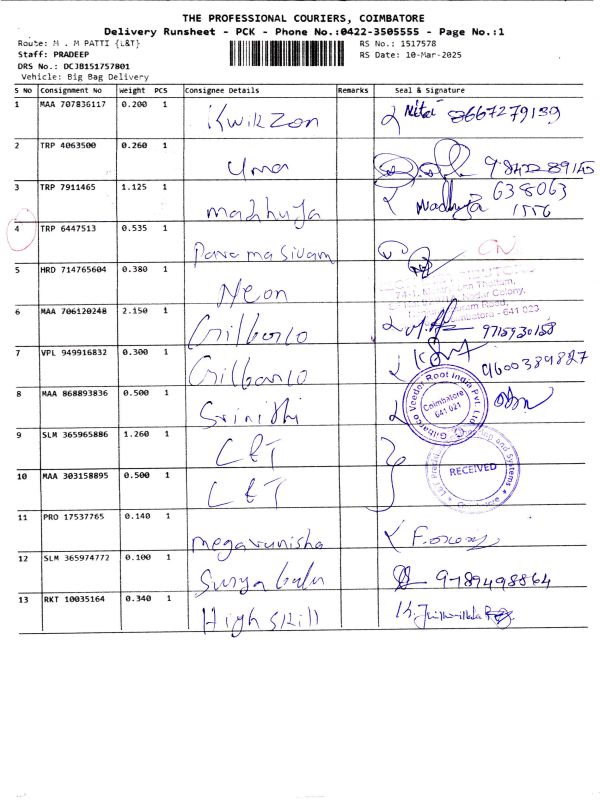 THE PROFESSIONAL COURIERS, COIMBATORE
Delivery Runsheet - PCK - Phone No.:0422-3505555 - Page No.:1
Route: M . M PATTI {L&T}
RS No.: 1517578
Staff: PRADEEP
RS Date: 10-Mar-2025
DRS No.: DCJB151757801
Vehicle: Big Bag Delivery
S No Consignment No Weight PCS Consignee Details Remarks Seal & Signature
1 MAA 707836117 0.200 1 Kwikzon Nitai 8667279139
2 TRP 4063500 0.260 1 Uma
3 TRP 7911465 1.125 1 638063
1556
4 TRP 6447513 0.535 1 Paramasivam
5 HRD 714765604 0.380 1 Neon
Nagar Colony,
Road,
Coimbatore - 641 023
6 MAA 706120248 2.150 1 Gilbarco 9715930158
7 VPL 949916832 0.300 1 Gilbarco 9600389827
8 MAA 868893836 0.500 1 Srinithi
Gilbarco Veeder Root India Pvt. Ltd
Coimbatore
641 021
9 SLM 365965886 1.260 1 L&T
RECEIVED
Coimbatore
10 MAA 303158895 0.500 1 L&T
11 PRO 17537765 0.140 1 megavunisha
12 SLM 365974772 0.100 1 Surya balu 9789498864
13 RKT 10035164 0.340 1 High skill